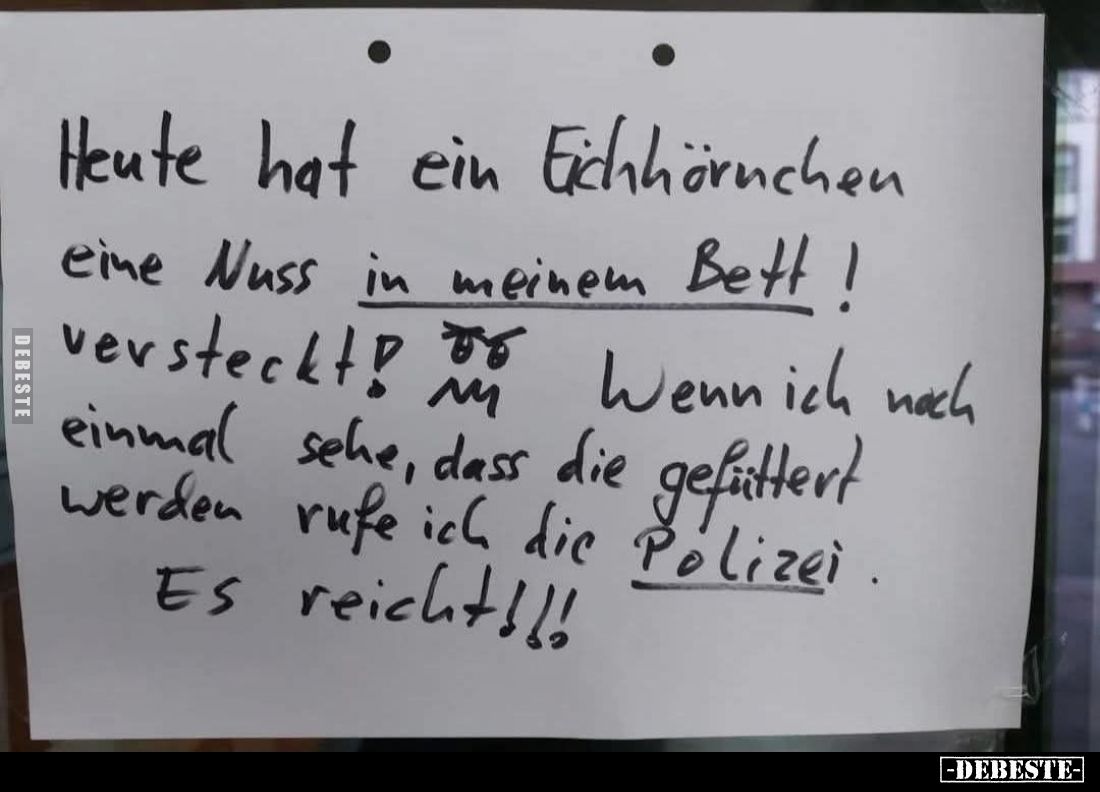 Heute hat ein Eichhörnchen
eine Nuss in meinem Bett!
versteckt! Wenn ich noch
einmal sehe, dass die gefüttert
werden rufe ich die Polizei.
Es reicht!!!
DEBESTE
-DEBESTE-